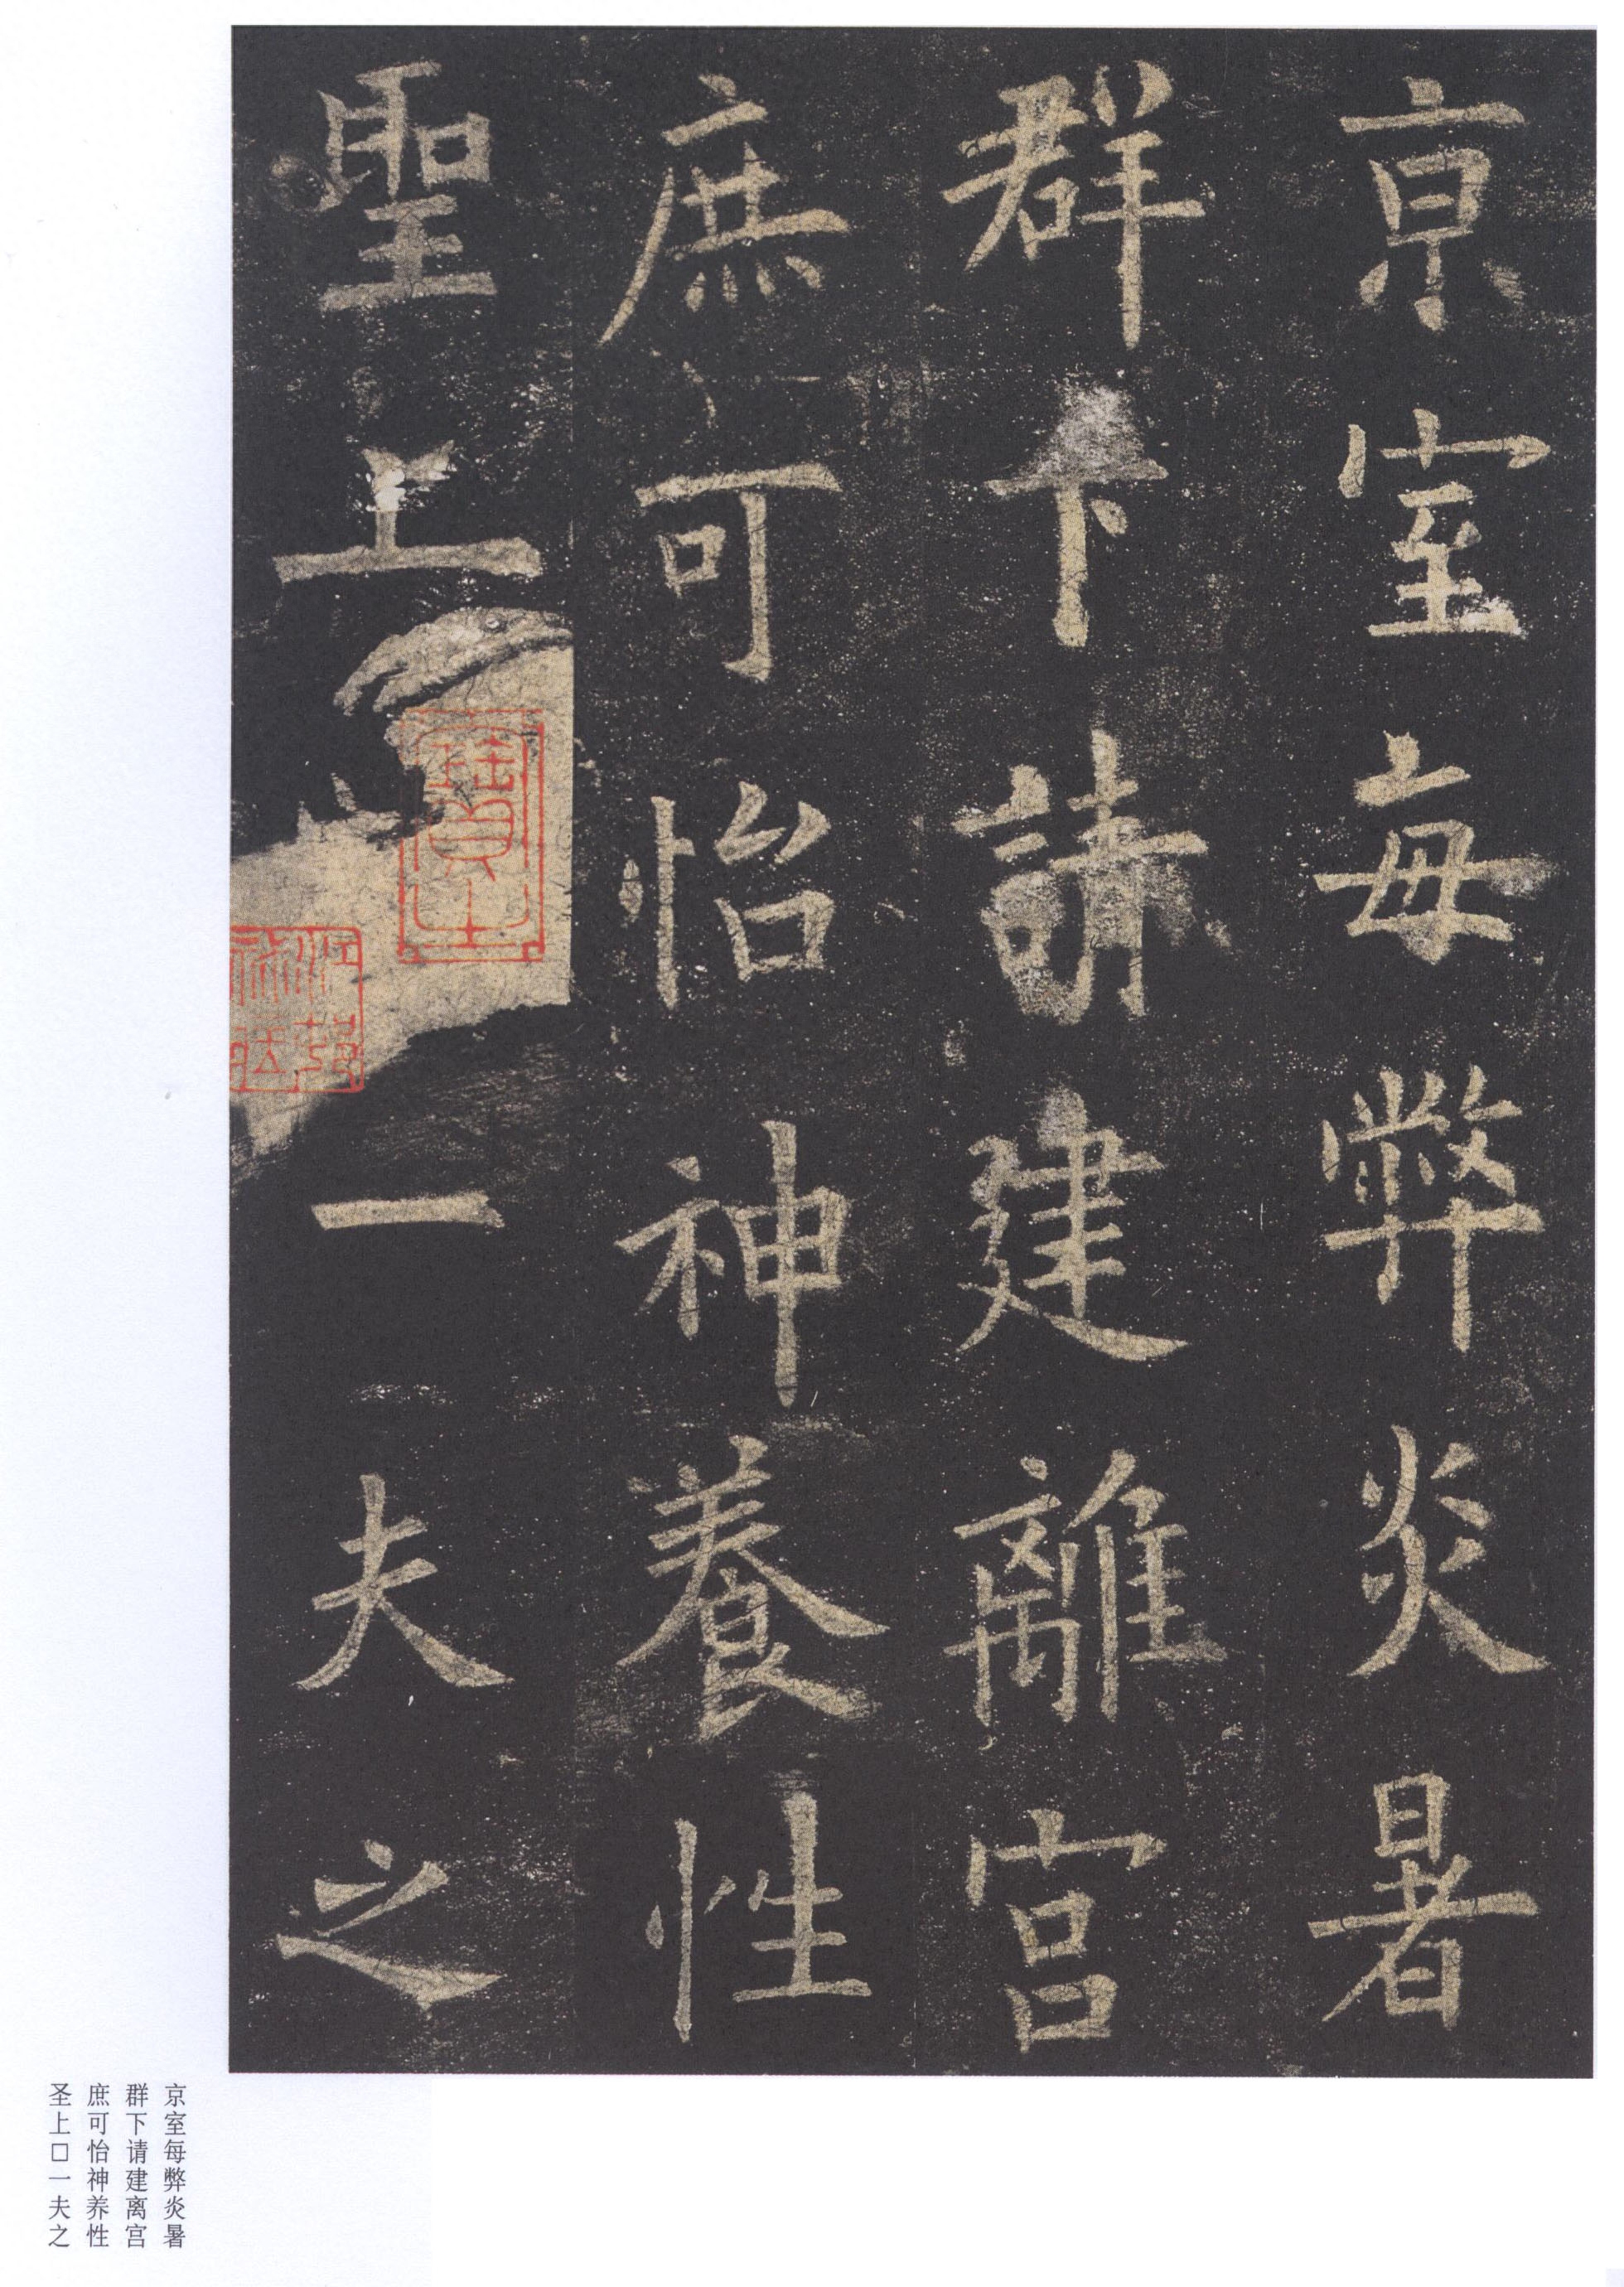 京室每弊炎暑
群下請建離宫
庶可怡神養性
聖上一夫之
京室每弊炎暑
群下请建离宫
庶可怡神养性
圣上□一夫之